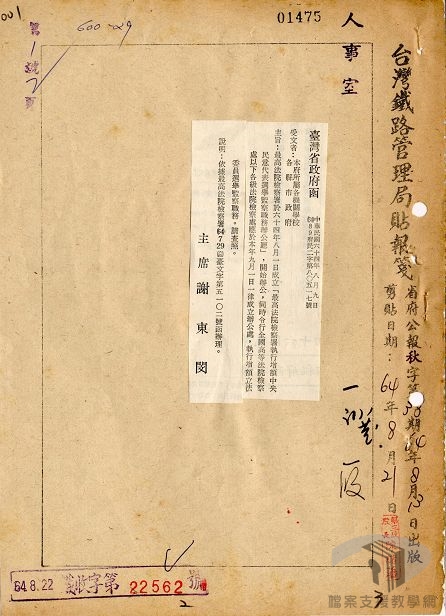 01475
600-29
人事室
台灣鐵路管理局貼報箋
省府公報秋字第 期64年8月13日出版
剪貼日期：64年8月21日
臺灣省政府函
中華民國六十四年八月九日
64 8 9府民二字第八〇五一七號
受文者：本府所屬各級機關學校
各縣市政府
主旨：最高法院檢察署於六十四年八月一日成立「最高法院檢察署執行增額中央
民意代表選舉監察職務辦公處」，開始辦公，同時令行全國高等法院檢察
處以下各級法院檢察處應於本年九月一日一律成立辦公處，執行增額立法
委員選舉監察職務。請查照。
說明：依據最高法院檢察署64 7 29台臺文字第五一〇二號函辦理。
主席 謝東閔
一
股
64.8.22
字第22562號
2
3
檔案支援教學網